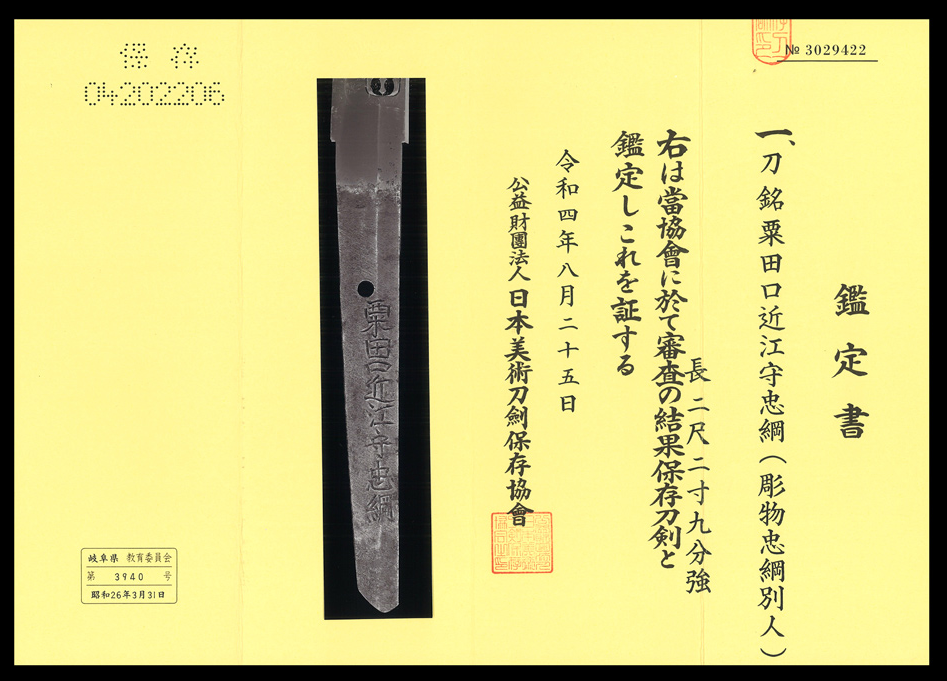 № 3029422
鑑定書
一、刀 銘 粟田口近江守忠綱(彫物忠綱別人)
長 二尺二寸九分強
右は當協會に於て審査の結果保存刀剣と
鑑定しこれを証する
令和四年八月二十五日
公益財團法人 日本美術刀劍保存協會
粟田口近江守忠綱
保存
04202206
岐阜県 教育委員会
第 3940 号
昭和26年3月31日